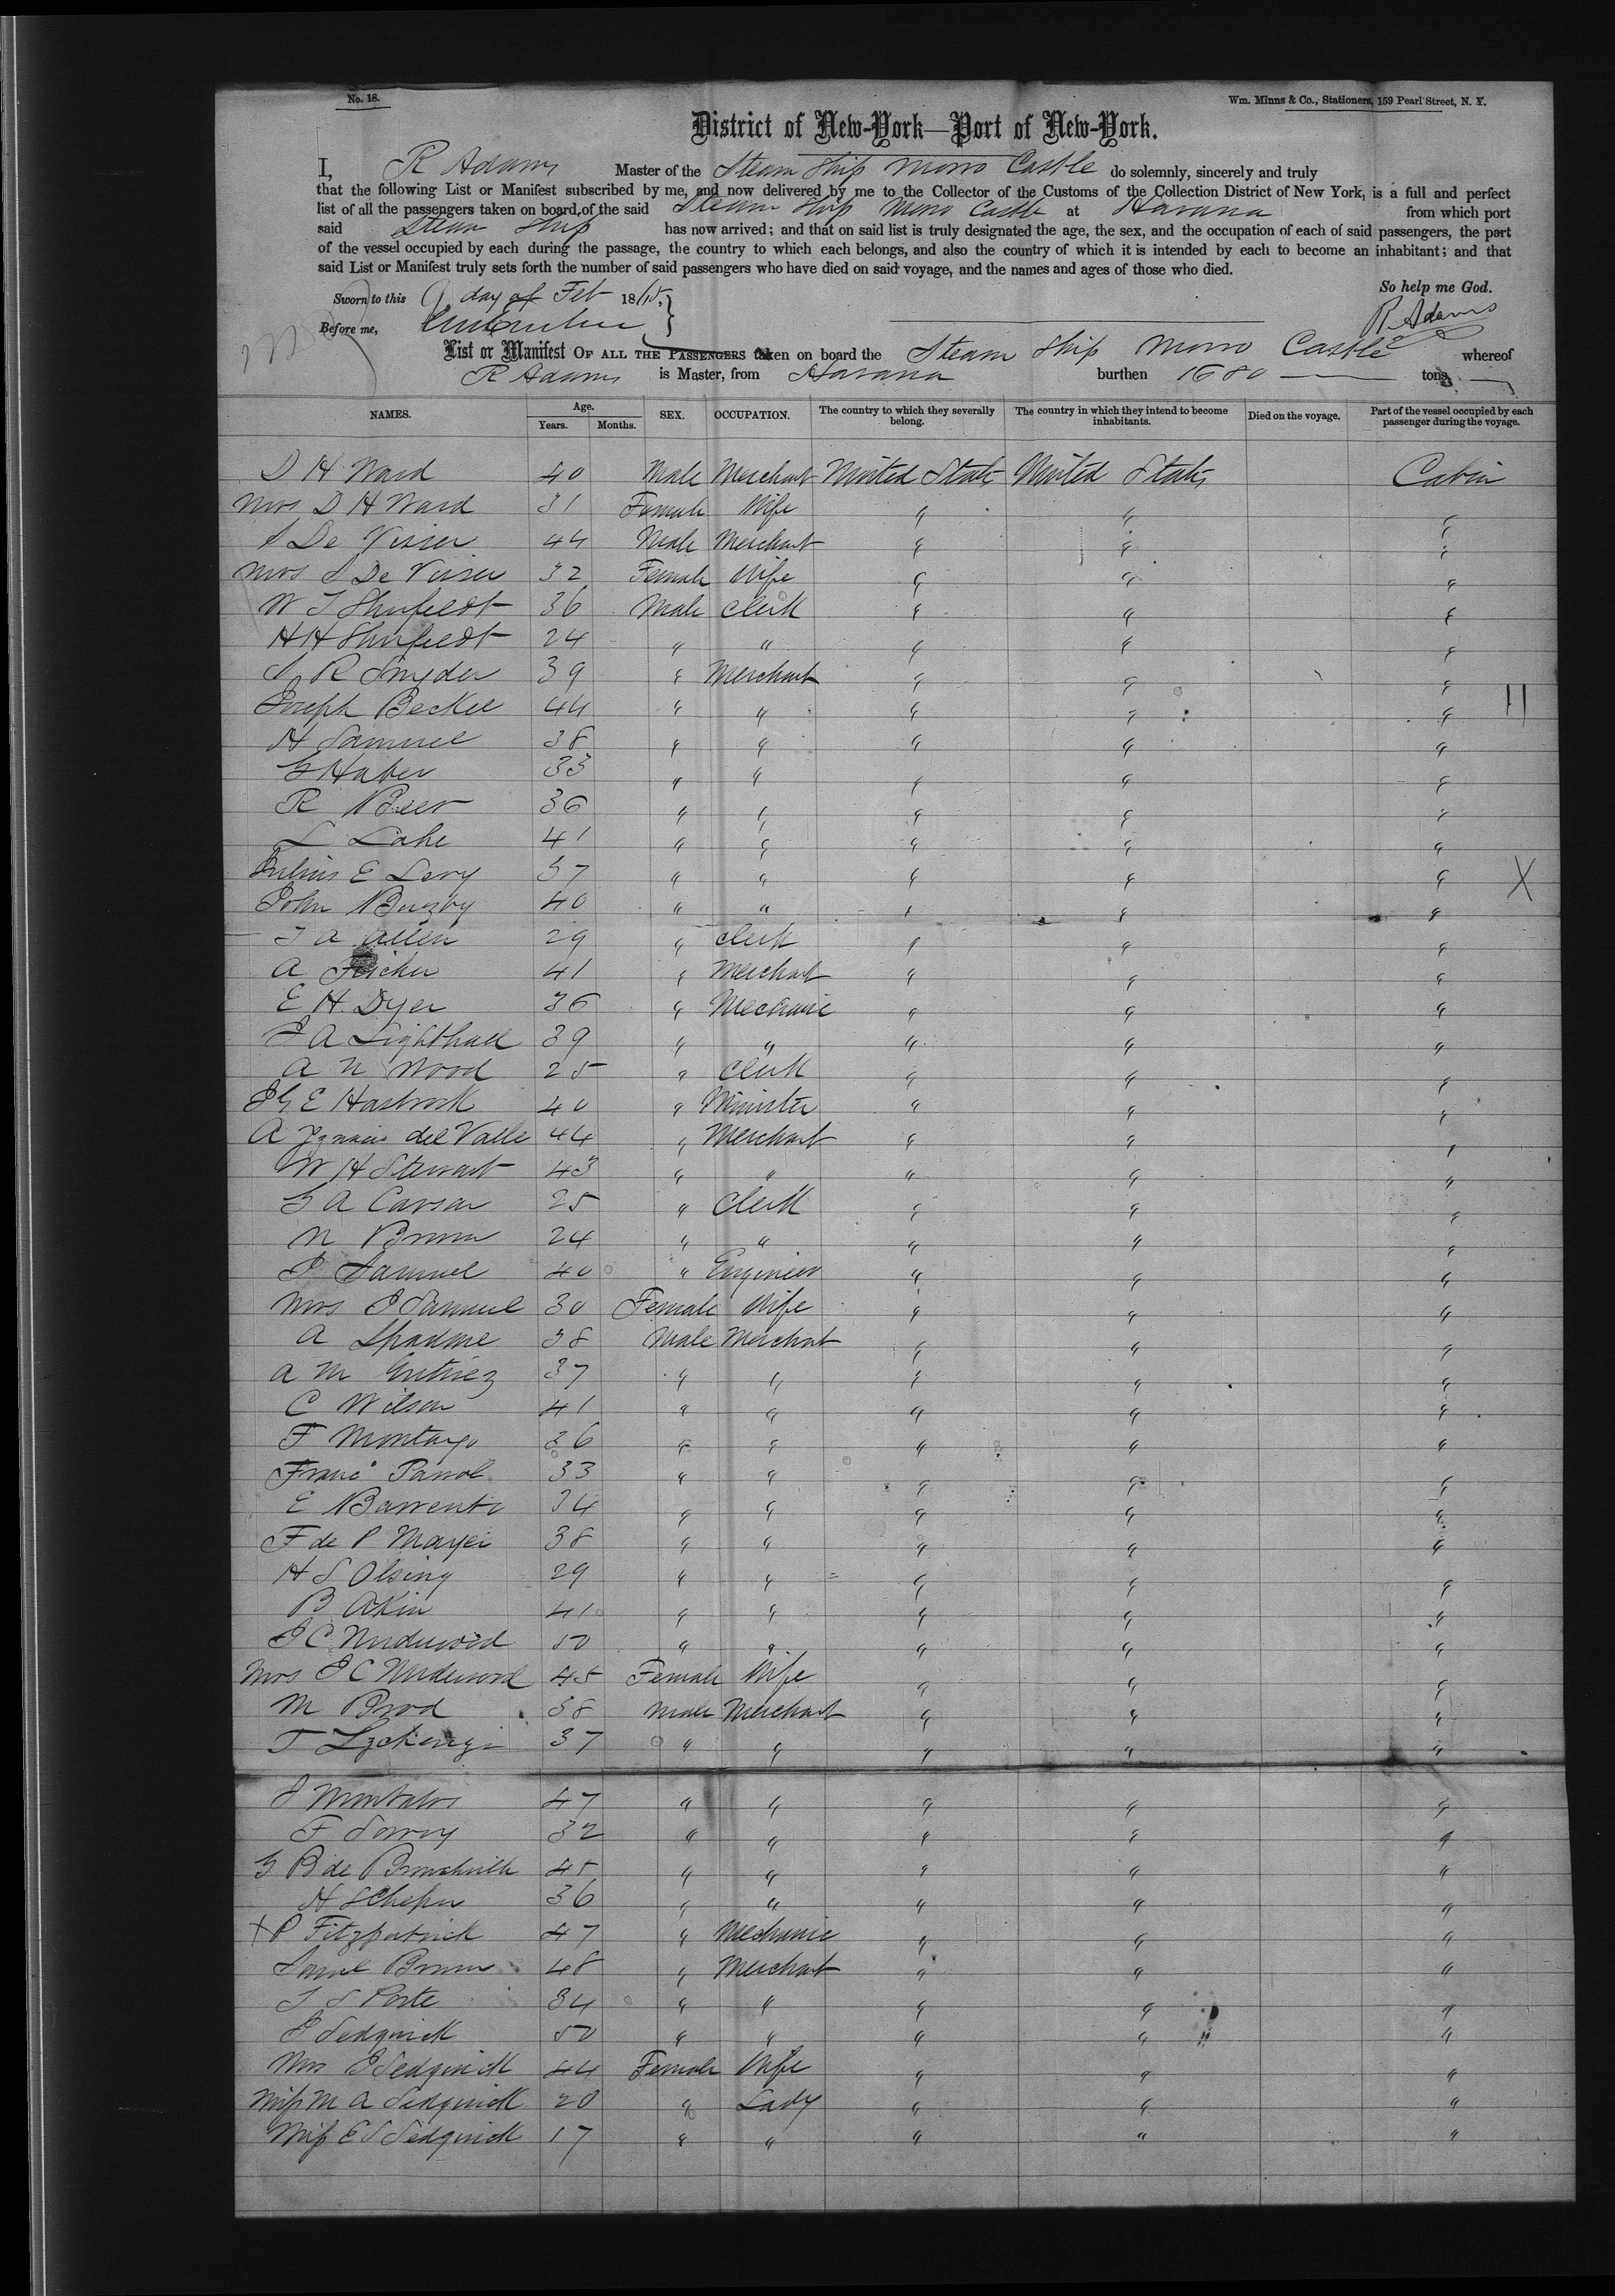 No. 18.
Wm. Minns & Co., Stationers, 159 Pearl Street, N. Y.
District of New-York—Port of New-York.
I, R Adams Master of the Steam Ship Morro Castle do solemnly, sincerely and truly
that the following List or Manifest subscribed by me, and now delivered by me to the Collector of the Customs of the Collection District of New York, is a full and perfect
list of all the passengers taken on board, of the said Steam Ship Morro Castle at Havana from which port
said Steam Ship has now arrived; and that on said list is truly designated the age, the sex, and the occupation of each of said passengers, the part
of the vessel occupied by each during the passage, the country to which each belongs, and also the country of which it is intended by each to become an inhabitant; and that
said List or Manifest truly sets forth the number of said passengers who have died on said voyage, and the names and ages of those who died.
So help me God.
Sworn to this 9 day of Feb 1865,
R. Adams
Before me,
List or Manifest OF ALL THE PASSENGERS taken on board the Steam Ship Morro Castle whereof
R Adams is Master, from Havana burthen 1680 tons
NAMES. Age. Years. Months. SEX. OCCUPATION. The country to which they severally belong. The country in which they intend to become inhabitants. Died on the voyage. Part of the vessel occupied by each passenger during the voyage.
D H Ward 40 Male Merchant United States United States Cabin
Mrs D H Ward 31 Female Wife " " "
S De Visser 44 Male Merchant " " "
Mrs S De Visser 32 Female Wife " " "
W T Shufeldt 36 Male Clerk " " "
H H Shufeldt 24 " " " " "
S R Snyder 39 " Merchant " " "
Joseph Beckel 44 " " " " "
H Samuel 38 " " " " "
G Haber 33 " " " " "
R Beer 36 " " " " "
L Lake 41 " " " " "
Julius E Levy 37 " " " " "
John Buzby 40 " " " " "
T A Allen 29 " Clerk " " "
A 41 " Merchant " " "
E H. Dyer 36 " Mechanic " " "
J A Lighthall 39 " " " " "
A N Wood 25 " Clerk " " "
J G E Hasbrock 40 " Minister " " "
A Ygnacio del Valle 44 " Merchant " " "
W H Stewart 43 " " " " "
G A Carson 25 " Clerk " " "
N Brown 24 " " " " "
J Samuel 40 " Engineer " " "
Mrs J Samuel 30 Female Wife " " "
A Spadone 38 Male Merchant " " "
A M 37 " " " " "
C Wilson 41 " " " " "
F Montayo 36 " " " " "
Franc° 33 " " " " "
E 34 " " " " "
F de P Mayei 38 " " " " "
H S Olsing 29 " " " " "
B Akin 41 " " " " "
J C Underwood 50 " " " " "
Mrs J C Underwood 45 Female Wife " " "
M Brod 38 Male Merchant " " "
T 37 " " " " "
J Montalvo 47 " " " " "
F 32 " " " " "
G B de 45 " " " " "
H Schepn 36 " " " " "
X P Fitzpatrick 47 " Mechanic " " "
Saml Brown 48 " Merchant " " "
T S Porte 34 " " " " "
J Sedgwick 50 " " " " "
Mrs J Sedgwick 44 Female Wife " " "
Miss M A Sedgwick 20 " Lady " " "
Miss E S Sedgwick 17 " " " " "